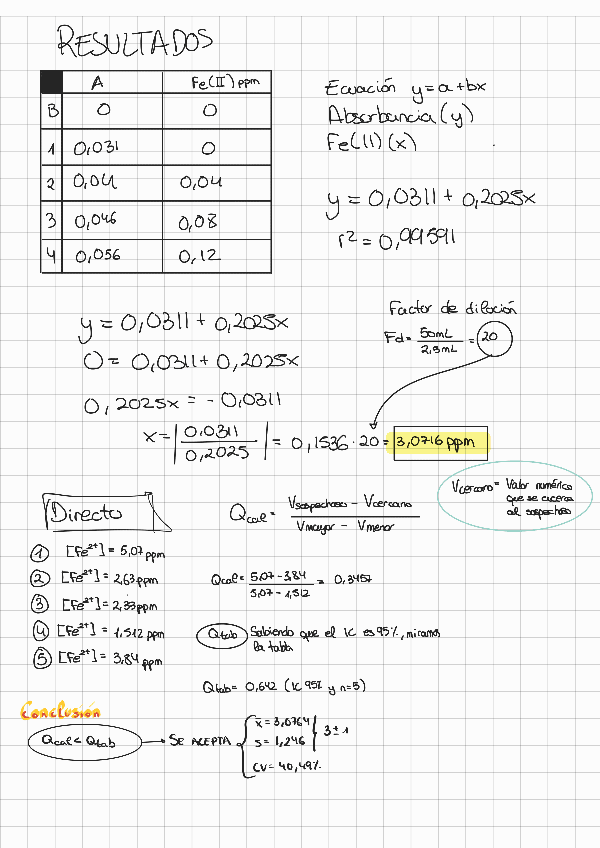 RESULTADOS
A Fe(II) ppm
B 0 0
1 0,031 0
2 0,041 0,04
3 0,046 0,08
4 0,056 0,12
Ecuación y=a+bx
Absorbancia (y)
Fe(II) (x)
y = 0,0311 + 0,2025x
r² = 0,99591
y = 0,0311 + 0,2025x
0 = 0,0311 + 0,2025x
0,2025x = - 0,0311
x = |0,0311 / 0,2025| = 0,1536 · 20 = 3,0716 ppm
Factor de dilución
Fd = 50mL / 2,5mL = 20
Directo
① [Fe²⁺] = 5,07 ppm
② [Fe²⁺] = 2,63 ppm
③ [Fe²⁺] = 2,33 ppm
④ [Fe²⁺] = 1,512 ppm
⑤ [Fe²⁺] = 3,84 ppm
Qcal = Vsospechoso - Vcercano / Vmayor - Vmenor
Vcercano = Valor numérico
que se acerca
al sospechoso
Qcal = 5,07 - 3,84 / 5,07 - 1,512 = 0,3457
Qtab Sabiendo que el IC es 95%, miramos
la tabla
Qtab = 0,642 (IC 95% y n=5)
Conclusión
Qcal < Qtab → SE ACEPTA
x̄ = 3,0764
s = 1,246
3 ± 1
CV = 40,49%